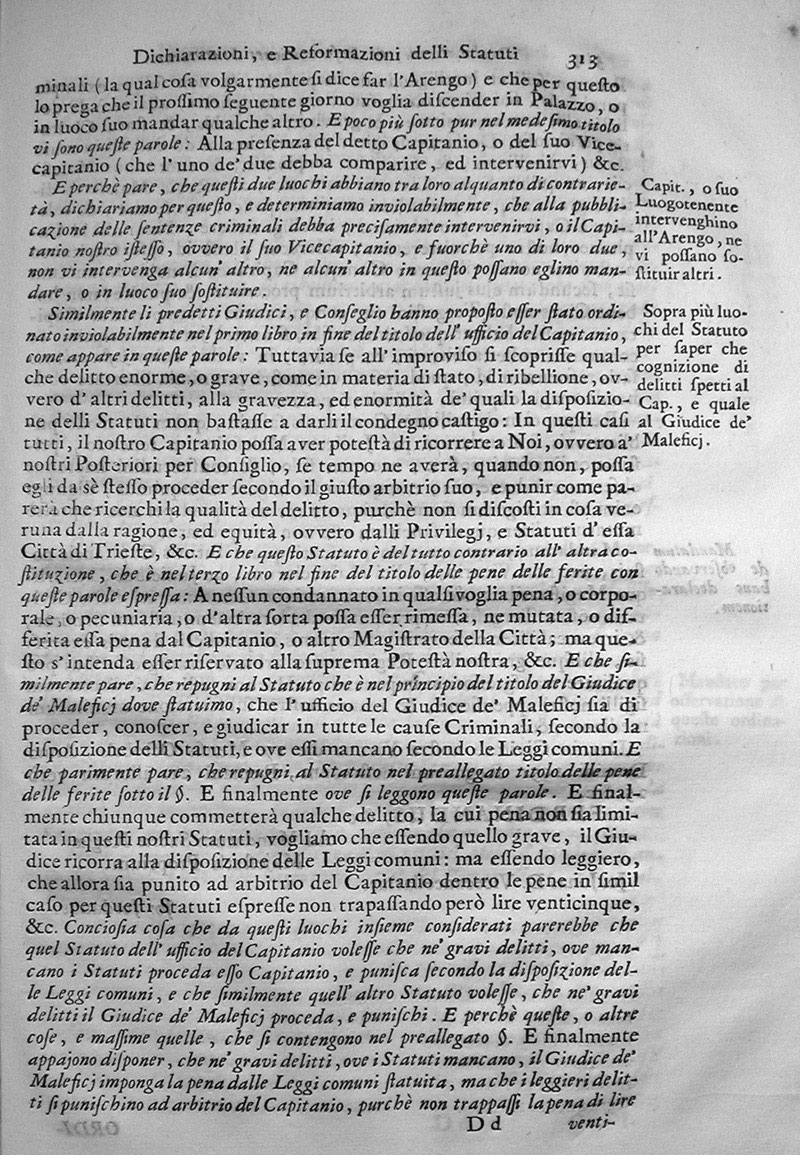 Dichiarazioni, e Reformazioni delli Statuti 313
minali (la qual coſa volgarmente ſi dice far l'Arengo) e che per queſto
lo prega che il proſſimo ſeguente giorno voglia diſcender in Palazzo, o
in luoco ſuo mandar qualche altro. E poco più ſotto pur nel medeſimo titolo
vi ſono queſte parole: Alla preſenza del detto Capitanio, o del ſuo Vice-
capitanio (che l' uno de' due debba comparire, ed intervenirvi) &c.
E perchè pare, che queſti due luochi abbiano tra loro alquanto di contrarie-
tà, dichiariamo per queſto, e determiniamo inviolabilmente, che alla pubbli-
cazione delle ſentenze criminali debba preciſamente intervenirvi, o il Capi-
tanio noſtro iſteſſo, ovvero il ſuo Vicecapitanio, e fuorchè uno di loro due,
non vi intervenga alcun altro, ne alcun altro in queſto poſſano eglino man-
dare, o in luoco ſuo ſoſtituire.
Capit., o ſuo
Luogotenente
intervenghino
all'Arengo, ne
vi poſſano ſo-
ſtituir altri.
Similmente li predetti Giudici, e Conſeglio hanno propoſto eſſer ſtato ordi-
nato inviolabilmente nel primo libro in fine del titolo dell' ufficio del Capitanio,
come appare in queſte parole: Tuttavia ſe all' improviſo ſi ſcopriſſe qual-
che delitto enorme, o grave, come in materia di ſtato, di ribellione, ov-
vero d' altri delitti, alla gravezza, ed enormità de' quali la diſpoſizio-
ne delli Statuti non baſtaſſe a darli il condegno caſtigo: In queſti caſi
tutti, il noſtro Capitanio poſſa aver poteſtà di ricorrere a Noi, ovvero a'
noſtri Poſteriori per Conſiglio, ſe tempo ne averà, quando non, poſſa
egli da sè ſteſſo proceder ſecondo il giuſto arbitrio ſuo, e punir come pa-
rerà che ricerchi la qualità del delitto, purchè non ſi diſcoſti in coſa ve-
runa dalla ragione, ed equità, ovvero dalli Privilegj, e Statuti d' eſſa
Città di Trieſte, &c. E che queſto Statuto è del tutto contrario all' altra co-
ſtituzione, che è nel terzo libro nel fine del titolo delle pene delle ferite con
queſte parole eſpreſſa: A neſſun condannato in qualſivoglia pena, o corpo-
rale, o pecuniaria, o d'altra ſorta poſſa eſſer rimeſſa, ne mutata, o dif-
ferita eſſa pena dal Capitanio, o altro Magiſtrato della Città; ma que-
ſto s' intenda eſſer riſervato alla ſuprema Poteſtà noſtra, &c. E che ſi-
milmente pare, che repugni al Statuto che è nel principio del titolo del Giudice
de' Maleficj dove ſtatuimo, che l' ufficio del Giudice de' Maleficj ſia di
proceder, conoſcer, e giudicar in tutte le cauſe Criminali, ſecondo la
diſpoſizione delli Statuti, e ove eſſi mancano ſecondo le Leggi comuni. E
che parimente pare, che repugni al Statuto nel preallegato titolo delle pene
delle ferite ſotto il §. E finalmente ove ſi leggono queſte parole. E final-
mente chiunque commetterà qualche delitto, la cui pena non ſia limi-
tata in queſti noſtri Statuti, vogliamo che eſſendo quello grave, il Giu-
dice ricorra alla diſpoſizione delle Leggi comuni: ma eſſendo leggiero,
che allora ſia punito ad arbitrio del Capitanio dentro le pene in ſimil
caſo per queſti Statuti eſpreſſe non trapaſſando però lire venticinque,
&c. Concioſia coſa che da queſti luochi inſieme conſiderati parerebbe che
quel Statuto dell' ufficio del Capitanio voleſſe che ne' gravi delitti, ove man-
cano i Statuti proceda eſſo Capitanio, e puniſca ſecondo la diſpoſizione del-
le Leggi comuni, e che ſimilmente quell' altro Statuto voleſſe, che ne' gravi
delitti il Giudice de' Maleficj proceda, e puniſchi. E perchè queſte, o altre
coſe, e maſſime quelle, che ſi contengono nel preallegato §. E finalmente
appajono diſponer, che ne' gravi delitti, ove i Statuti mancano, il Giudice de'
Maleficj imponga la pena dalle Leggi comuni ſtatuita, ma che i leggieri delit-
ti ſi puniſchino ad arbitrio del Capitanio, purchè non trappaſſi la pena di lire
Sopra più luo-
chi del Statuto
per ſaper che
cognizione di
delitti ſpetti al
Cap., e quale
al Giudice de'
Maleficj.
D d venti-